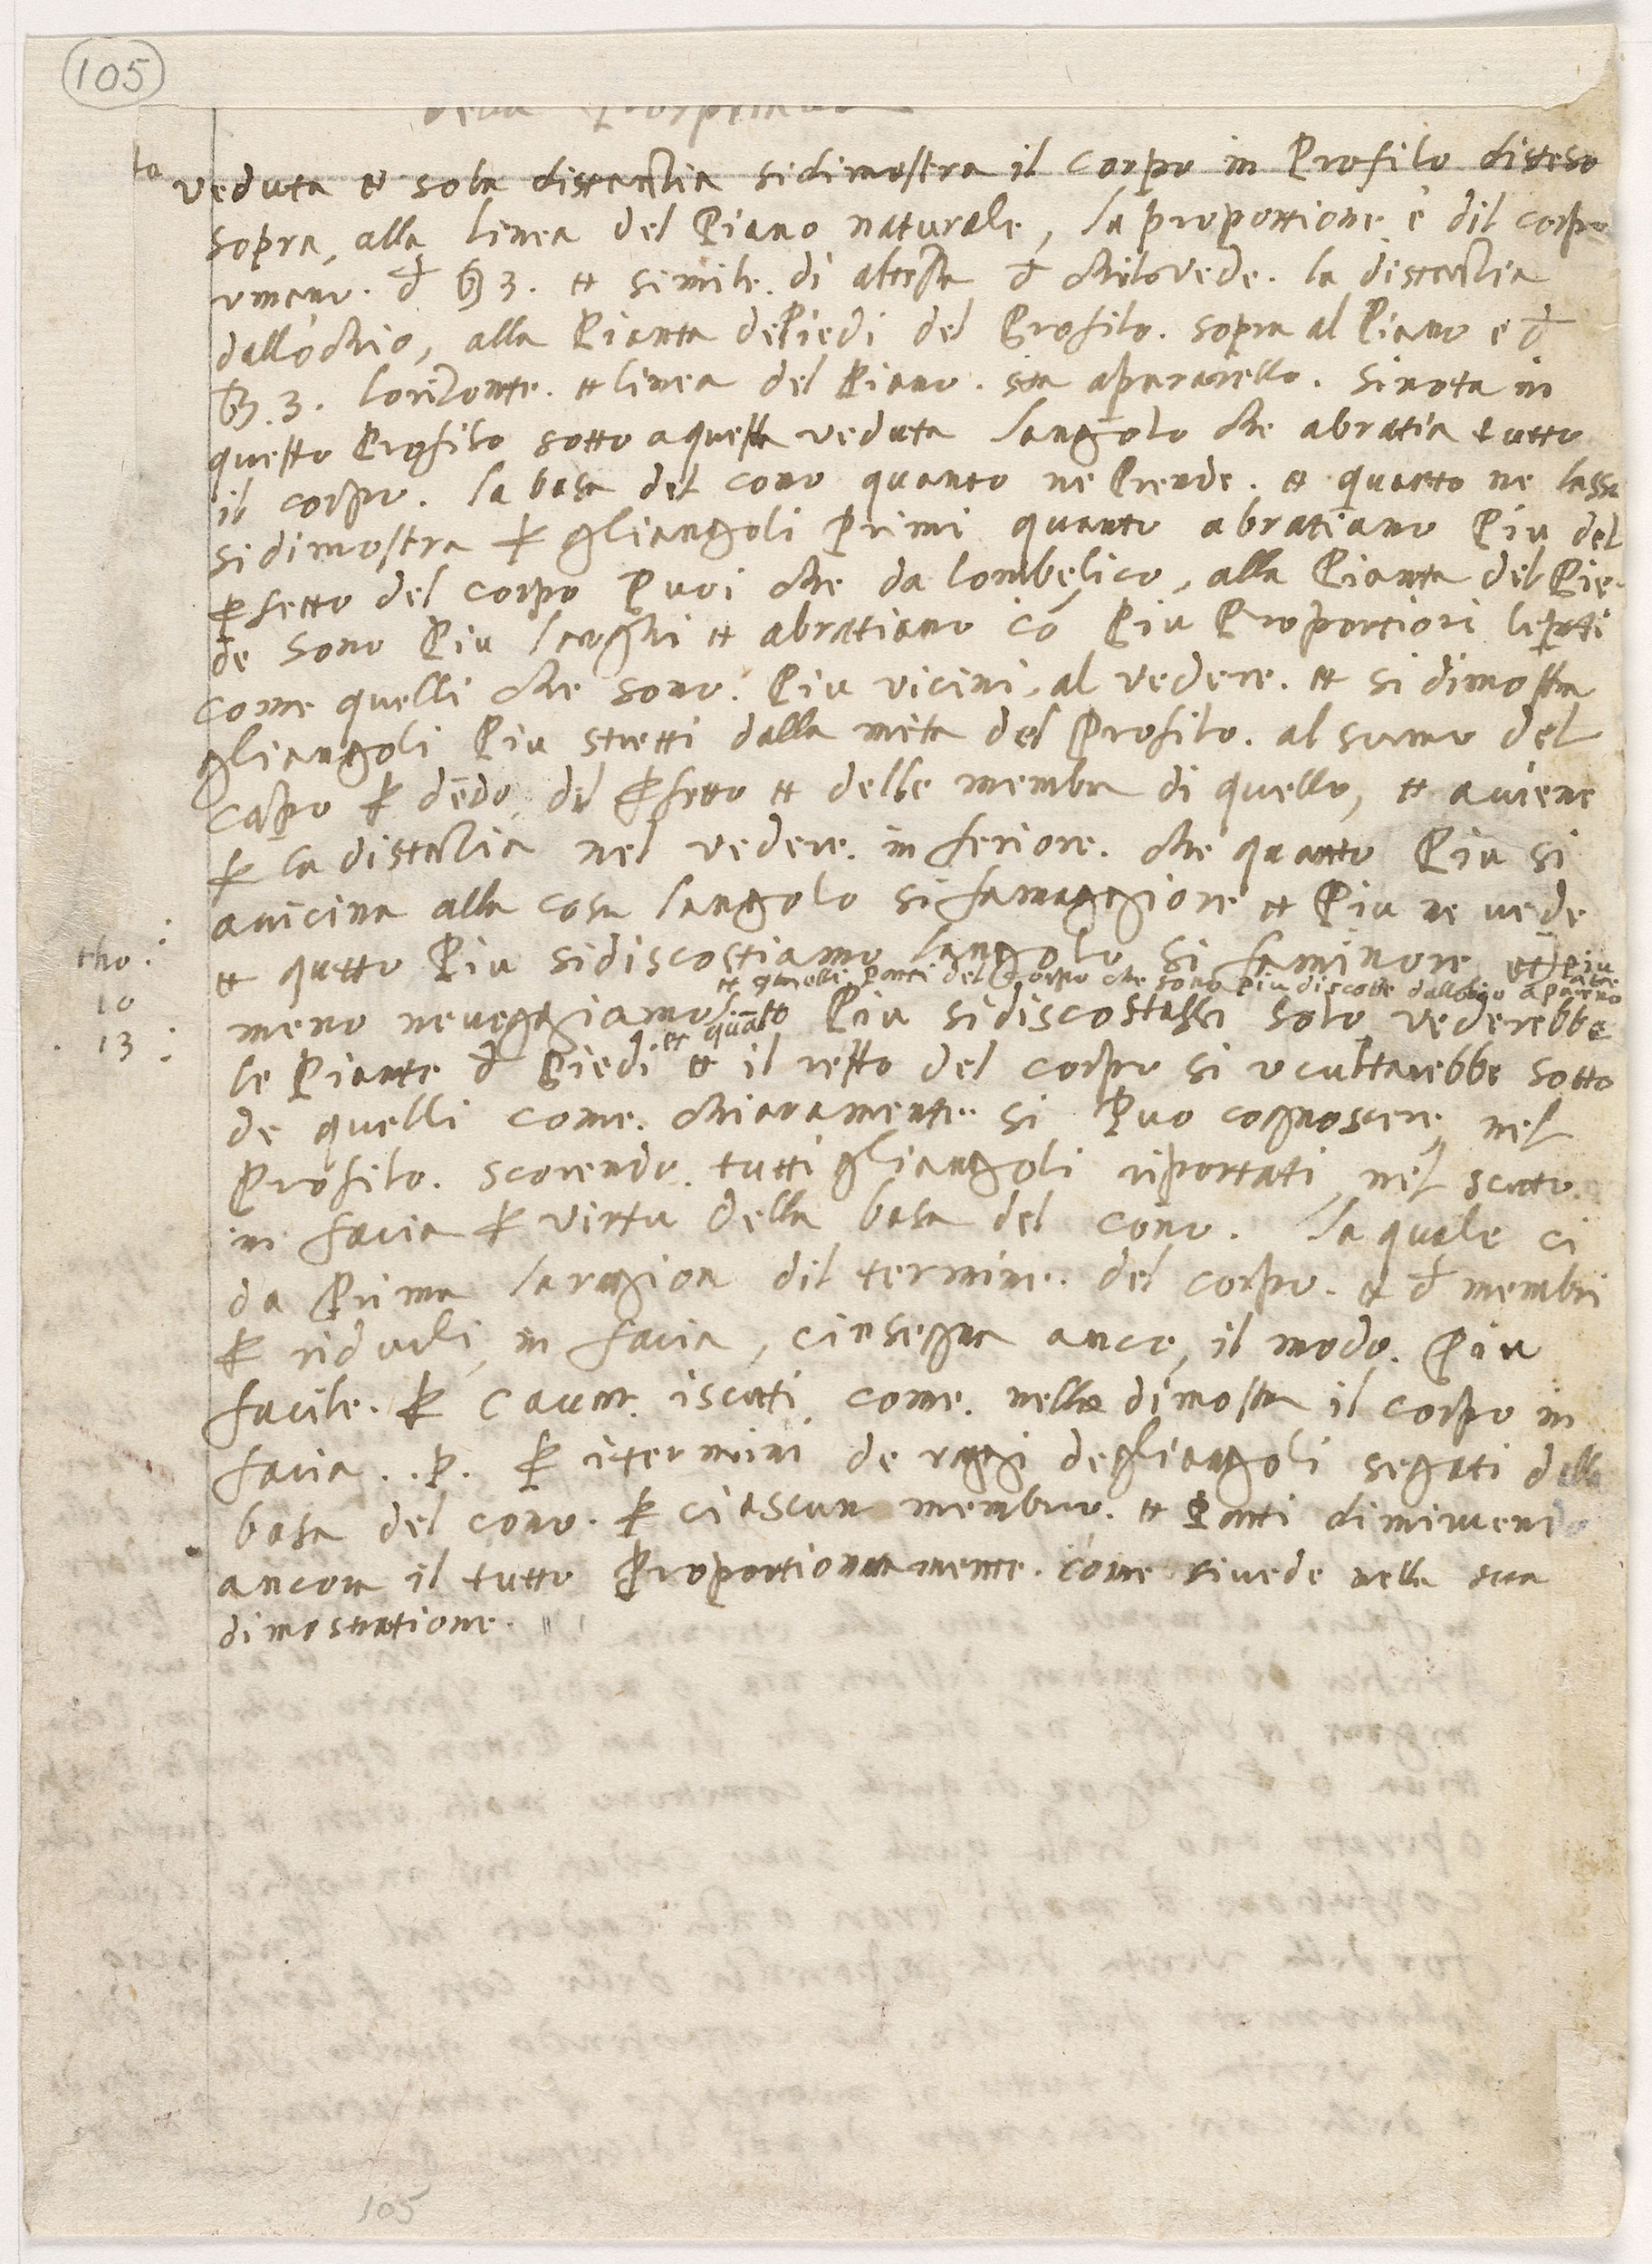 105
della Prospettiva
la veduta et sola distantia si dimostra il corpo in Profilo disteso
sopra, alla linea del Piano naturale, la proportione è dil corpo
umano. đ 3. et simile. di altesa đ chilovede. la distantia
dall'ochio, alla Pianta dePiedi del Profilo. sopra al Piano e đ
3. lorizonte. et linea del Piano. sta apararello. Sinota in
questo Profilo sotto aquesta veduta langolo che abratia tutto
il corpo. la basa del cono quanto ne Prende. et quanto ne lassa
si dimostra ꝑ gliangoli Primi quanto abratiano Piu del
ꝑfetto del corpo Puoi che da lombelico, alla Pianta del Pie-
de sono Piu larghi et abratiano cō Piu Proportioni leparti
come quelli che sono. Piu vicini, al vedere. et si dimostra
gliangoli Piu stretti dalla metà del Profilo. al sumo del
capo ꝑ dēdo, del ꝑfetto et delle membra di quello, et aviene
ꝑ la distantia nel vedere. inferiore. che quanto Piu si
avicina alla cosa langolo si famaggiore et Piu ne vede
tho:
et qutto Piu sidiscostiamo langolo si faminore et Piu
10
et quelle Parti del Corpo che sono Piu discoste dallochio apareno
meno neveggiamo. et quāto Piu sidiscostassi solo vederebbe
13:
le Piante đ Piedi et il resto del corpo si ocultarebbe sotto
de quelli come. chiaramente. si Puo cognoscere, nel
Profilo. scorendo. tutti gliangoli riportati, nel scurto.
in facia ꝑ virtu della basa del cono. la quale ci
da Prima laragion dil termine. del corpo. et đ membri
ꝑ ridurli, in facia, cinsegna anco, il modo. Piu
facile. ꝑ cavar. iscurti come. nella dimostra il corpo in
facia. .p. ꝑ itermini de raggi degliangoli segati dalla
basa del cono. ꝑ ciascun membro. et Parti diminuendo
ancora il tutto Proportionatamente. come sivede nella sua
dimostratione.
105